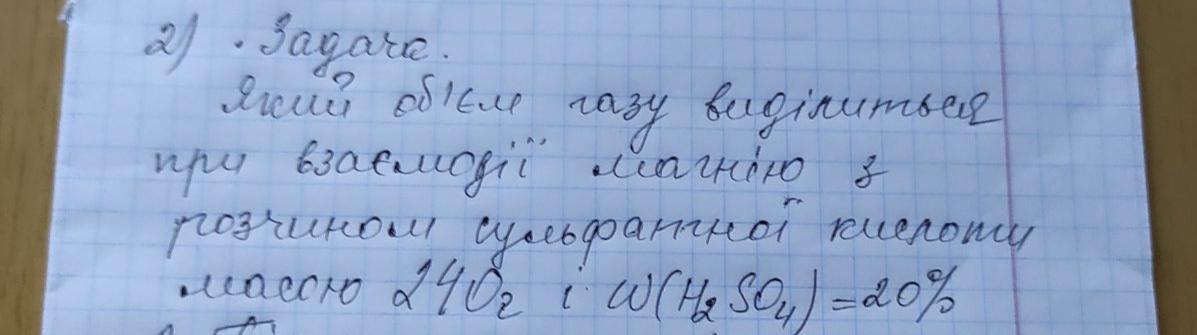 2) . Задача.
Який об'єм газу виділиться
при взаємодії магнію з
розчином сульфатної кислоти
масою 240г і W(H₂SO₄)=20%